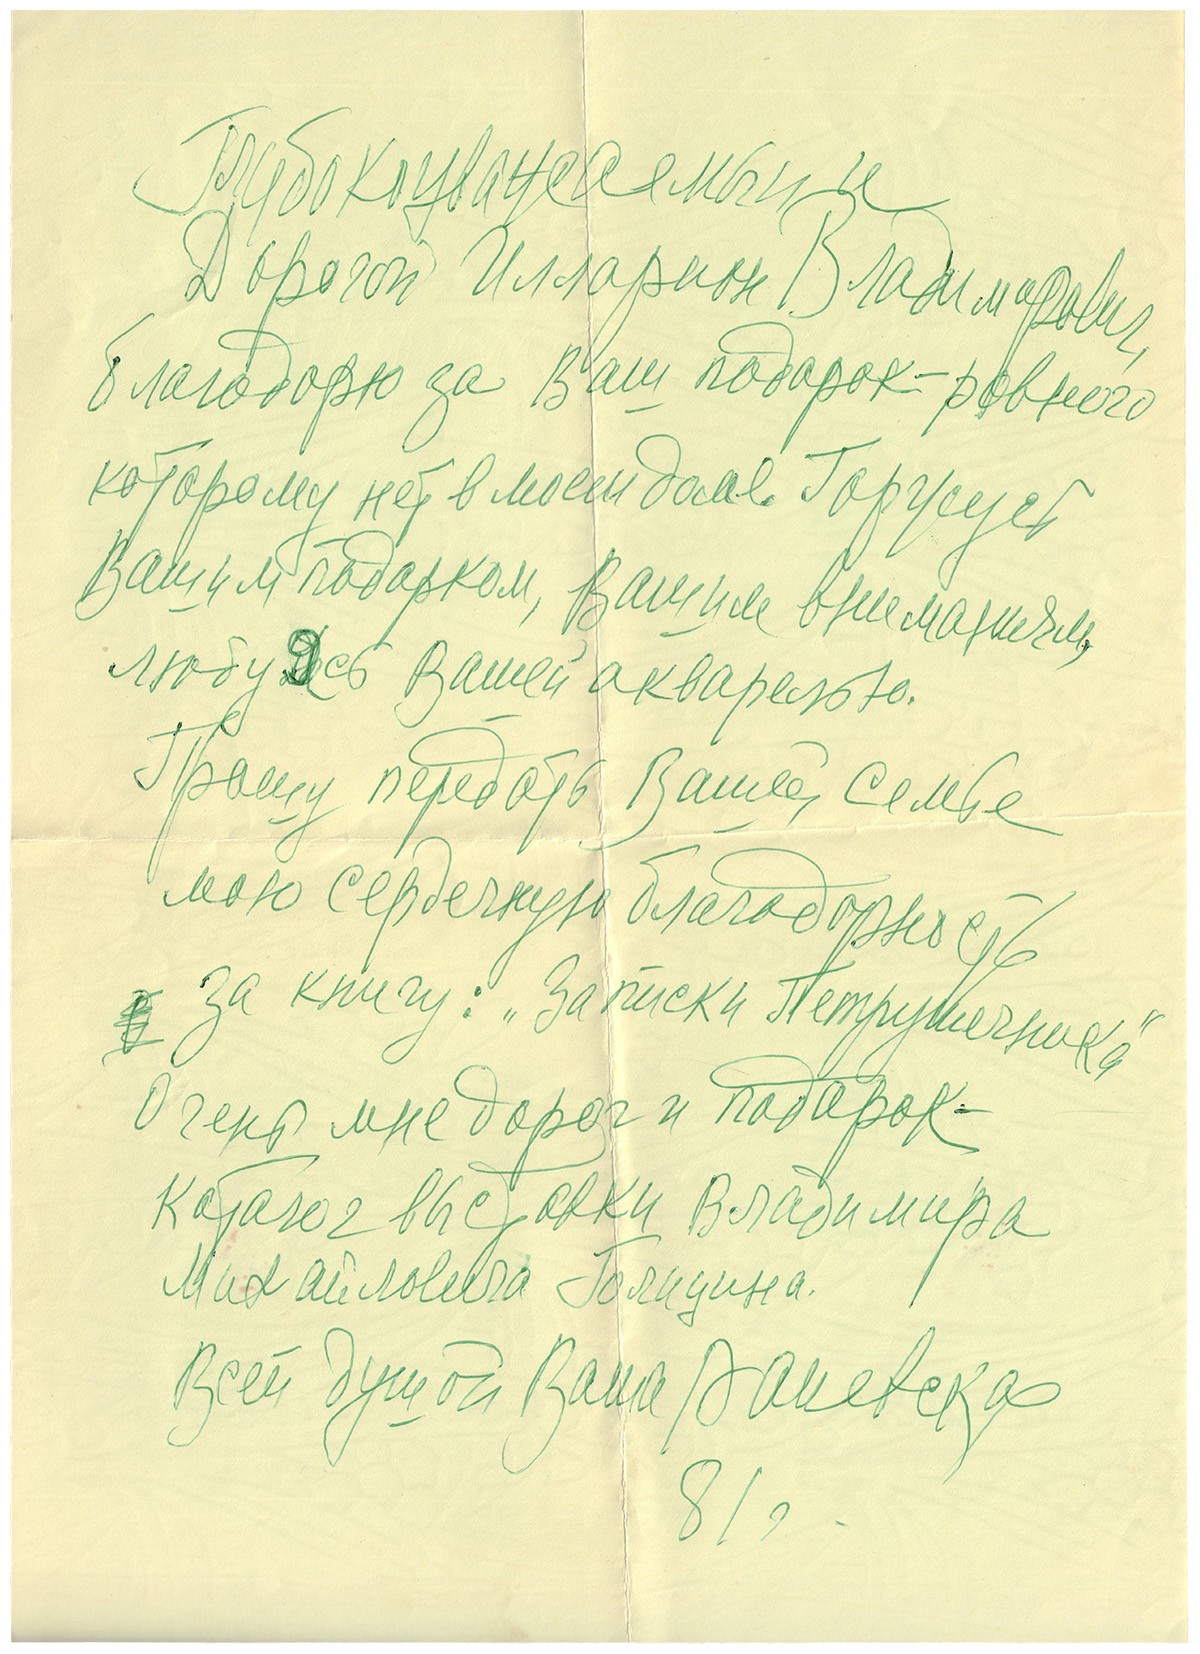 Глубокоуважаемый и
Дорогой Илларион Владимирович,
благодарю за Ваш подарок – ровного
которому нет в моем доме. Горжусь
Вашим подарком, Вашим вниманием,
любуюсь Вашей акварелью.
Прошу передать Вашей семье
мою сердечную благодарность
за книгу: „Записки Петрушечника"
Очень мне дорог и подарок –
каталог выставки Владимира
Михайловича Голицына.
Всей душой Ваша Раневская
81 г.